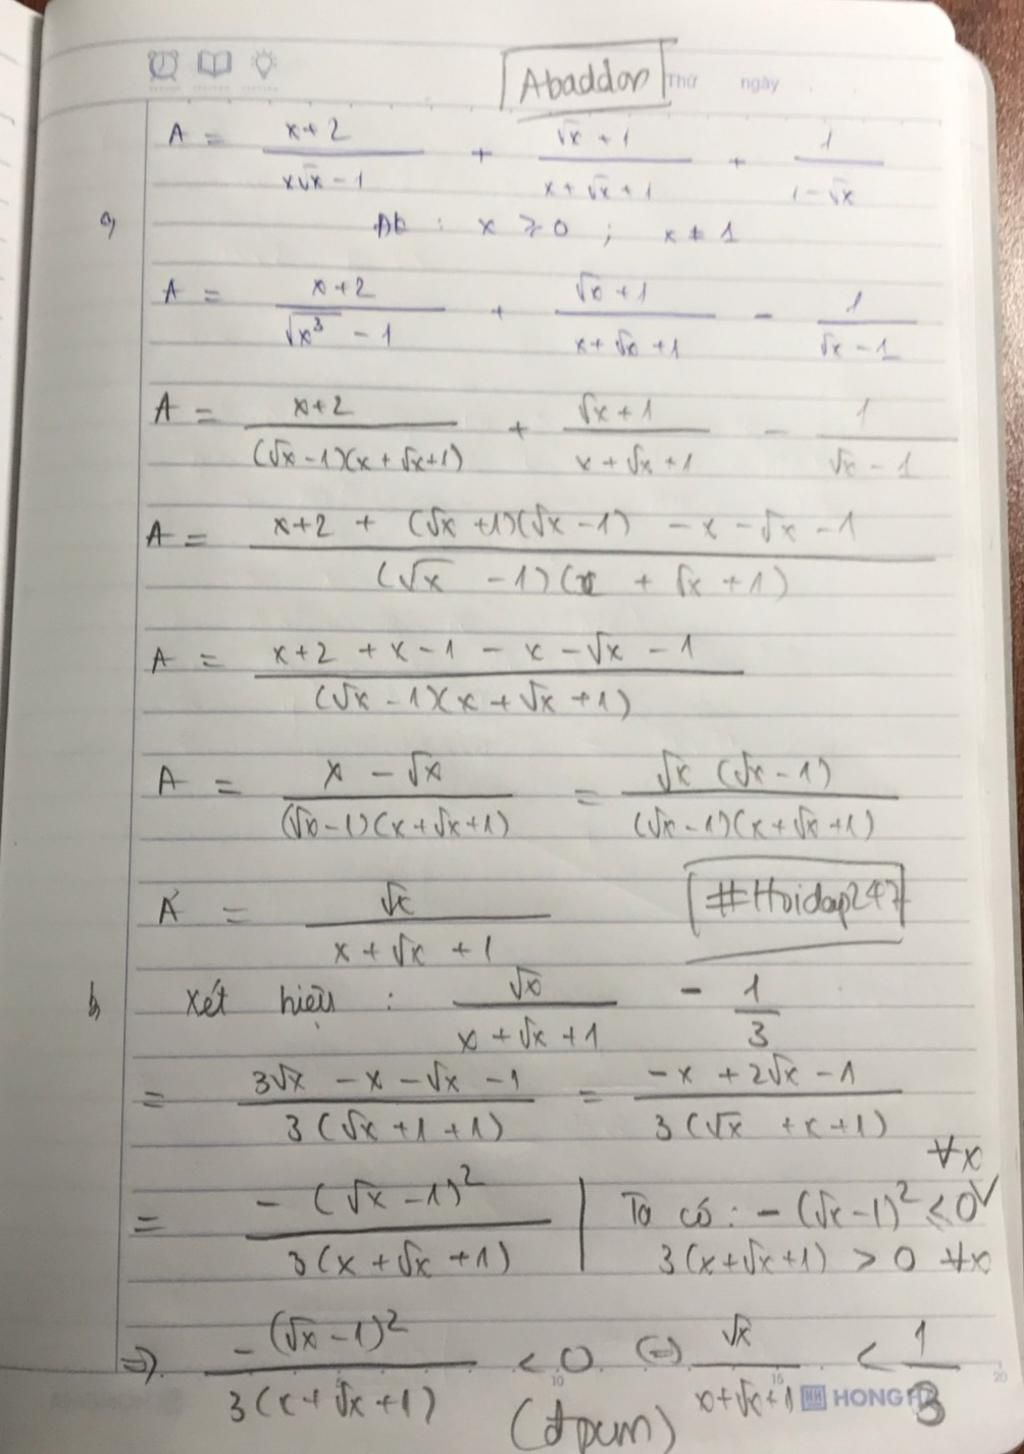 Abaddon Thứ ngày
A = \frac{x+2}{x\sqrt{x}-1} + \frac{\sqrt{x}+1}{x+\sqrt{x}+1} + \frac{1}{1-\sqrt{x}}
a, ĐK : x ≥ 0 ; x ≠ 1
A = \frac{x+2}{\sqrt{x^3}-1} + \frac{\sqrt{x}+1}{x+\sqrt{x}+1} - \frac{1}{\sqrt{x}-1}
A = \frac{x+2}{(\sqrt{x}-1)(x+\sqrt{x}+1)} + \frac{\sqrt{x}+1}{x+\sqrt{x}+1} - \frac{1}{\sqrt{x}-1}
A = \frac{x+2+(\sqrt{x}+1)(\sqrt{x}-1)-x-\sqrt{x}-1}{(\sqrt{x}-1)(x+\sqrt{x}+1)}
A = \frac{x+2+x-1-x-\sqrt{x}-1}{(\sqrt{x}-1)(x+\sqrt{x}+1)}
A = \frac{x-\sqrt{x}}{(\sqrt{x}-1)(x+\sqrt{x}+1)} = \frac{\sqrt{x}(\sqrt{x}-1)}{(\sqrt{x}-1)(x+\sqrt{x}+1)}
A = \frac{\sqrt{x}}{x+\sqrt{x}+1} #Hoidap247
b, Xét hiệu : \frac{\sqrt{x}}{x+\sqrt{x}+1} - \frac{1}{3}
= \frac{3\sqrt{x}-x-\sqrt{x}-1}{3(\sqrt{x}+1+1)} = \frac{-x+2\sqrt{x}-1}{3(\sqrt{x}+x+1)}
= \frac{-(\sqrt{x}-1)^2}{3(x+\sqrt{x}+1)} | Ta có : -(\sqrt{x}-1)^2 ≤ 0 ∀x
3(x+\sqrt{x}+1) > 0 ∀x
=> \frac{-(\sqrt{x}-1)^2}{3(x+\sqrt{x}+1)} < 0 (=) \frac{\sqrt{x}}{x+\sqrt{x}+1} < \frac{1}{3}
(đpcm)
10 15 20
HH HONG